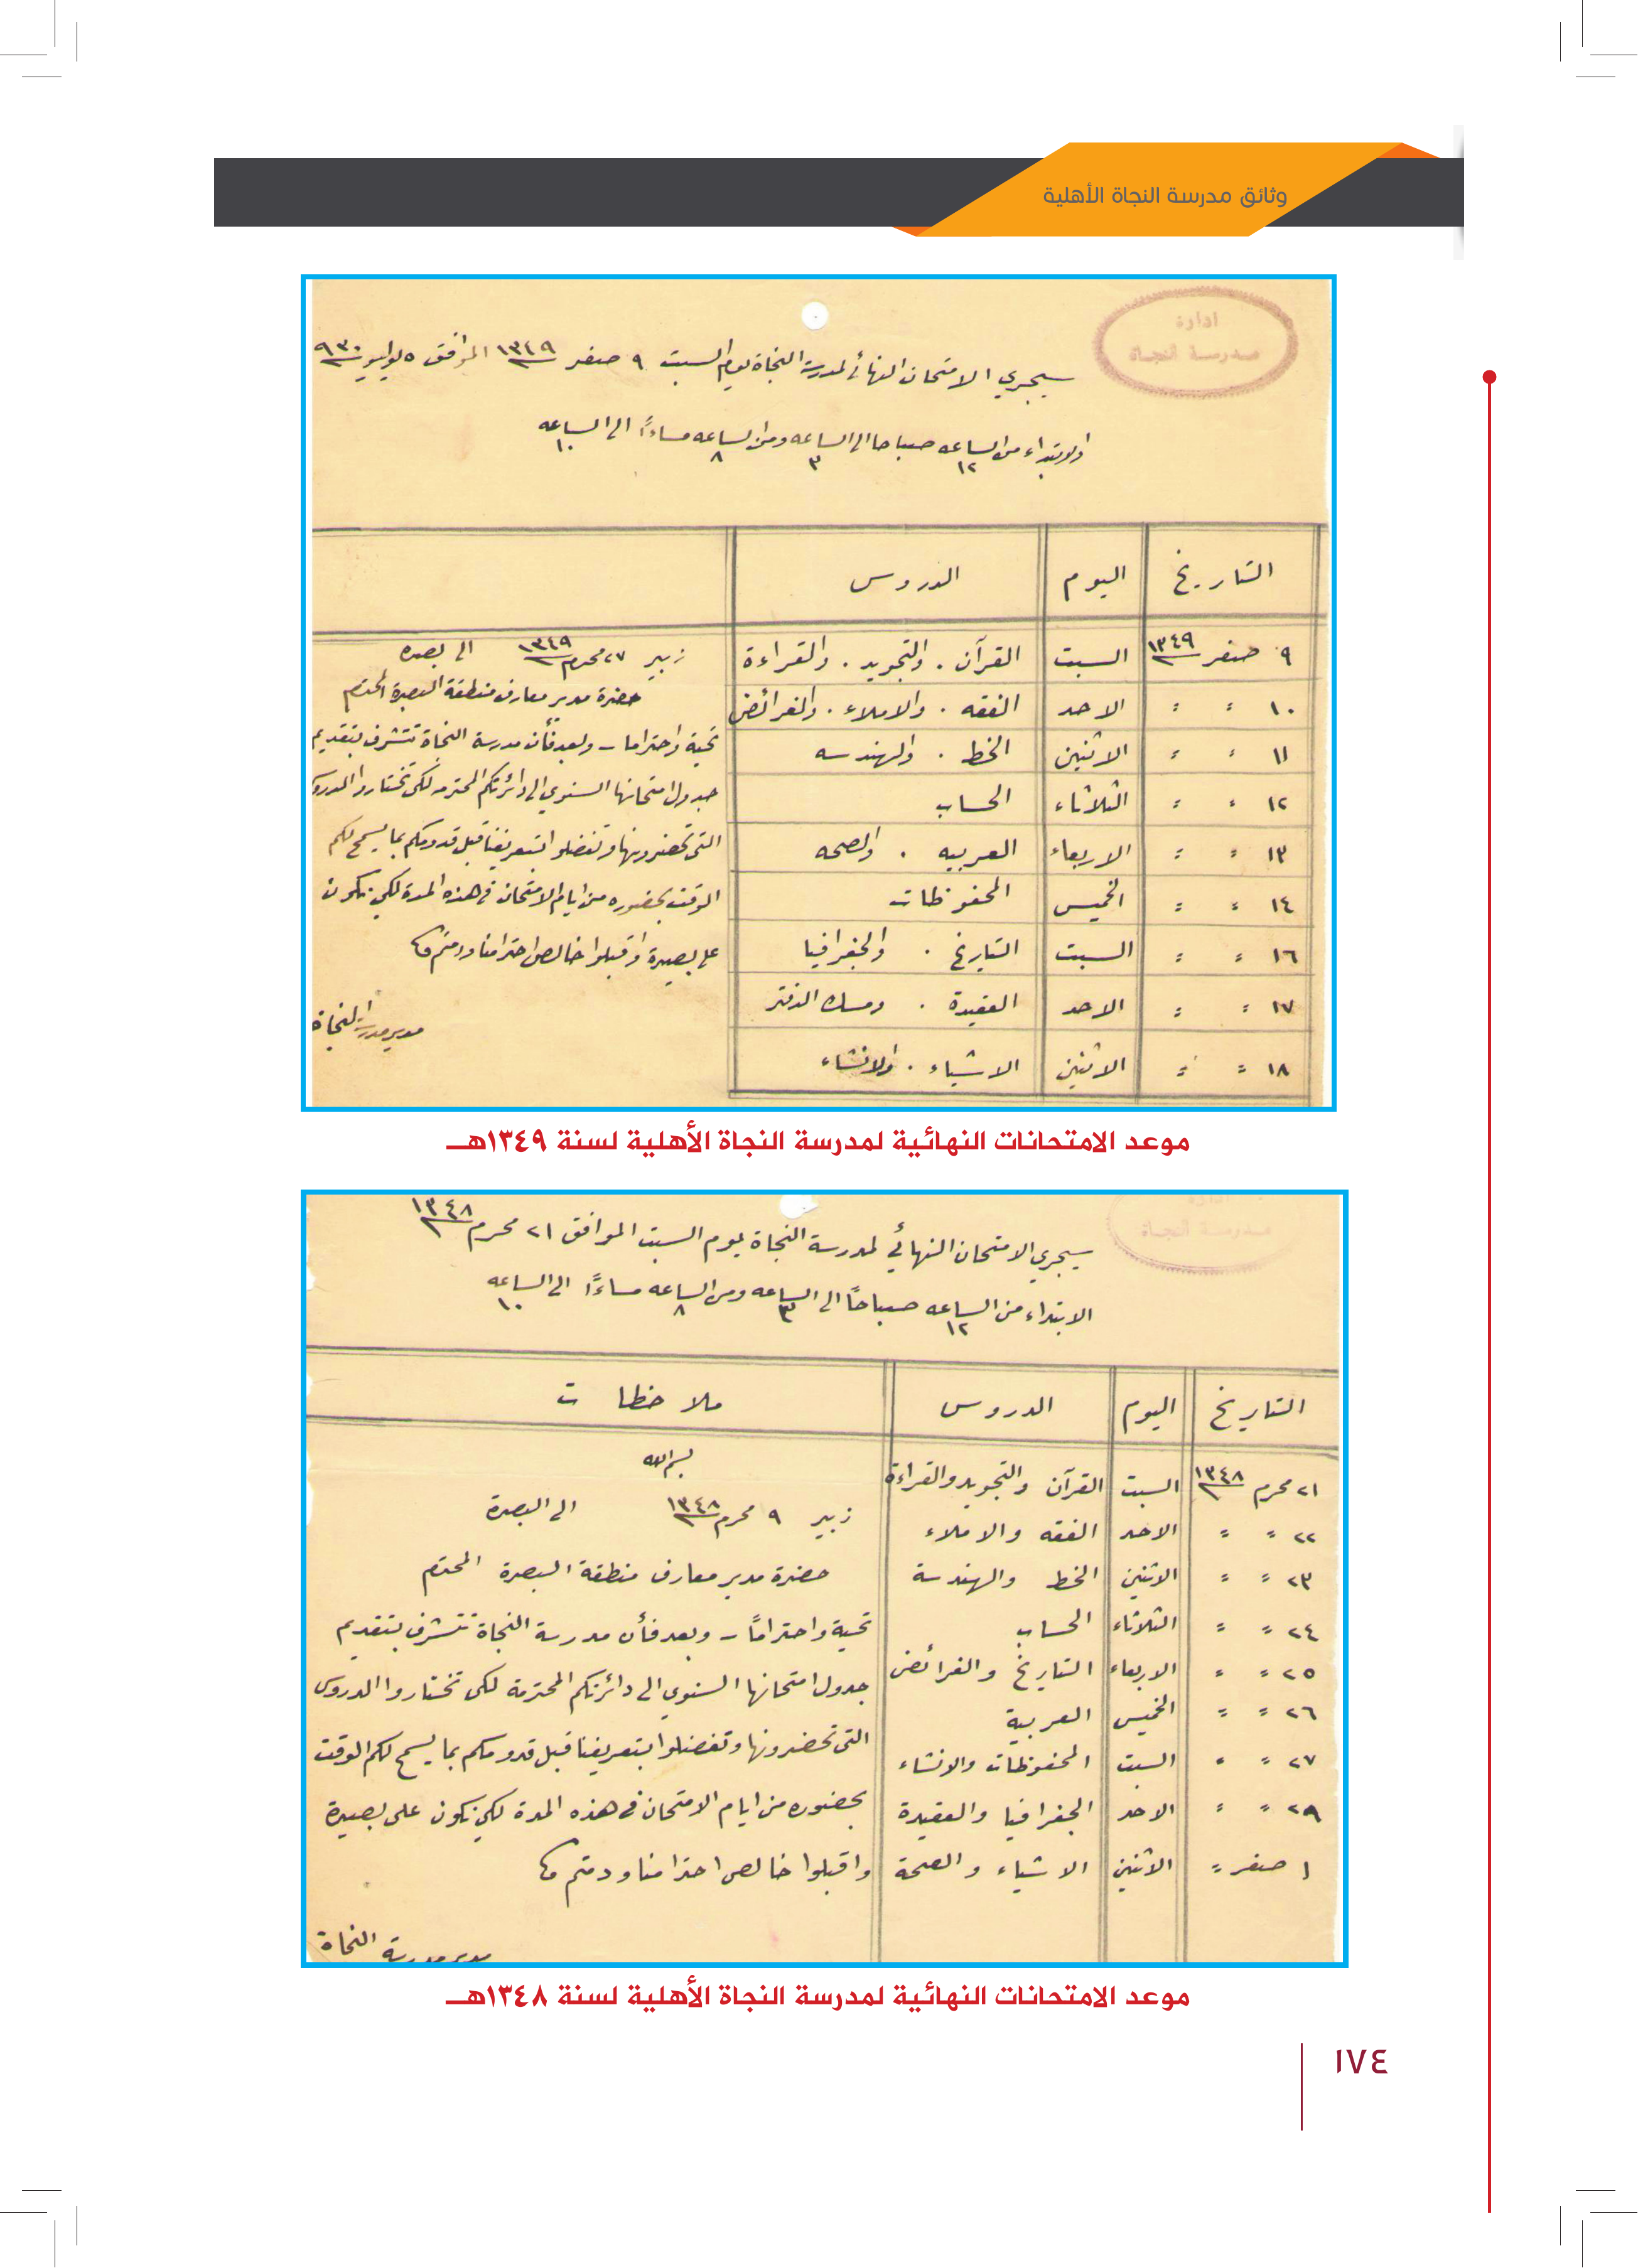 وثائق مدرسة النجاة الأهلية
ادارة
مدرسة النجاة
سيجري الامتحان النهائي لمدرسة النجاة يوم السبت ٩ صفر ١٣٤٩ الموافق ٥ يوليو ٩٣٠
والابتداء من الساعه ١٢ صباحا الى الساعه ٣ ومن الساعه ٨ مساءً الى الساعه ١٠
التاريخ اليوم الدروس
٩ صفر ١٣٤٩ السبت القرآن . والتجويد . والقراءة
١٠ " " الاحد الفقه . والاملاء . والفرائض
١١ " " الاثنين الخط . والهندسه
١٢ " " الثلاثاء الحساب
١٣ " " الاربعاء العربيه . والصحه
١٤ " " الخميس المحفوظات
١٦ " " السبت التاريخ . والجغرافيا
١٧ " " الاحد العقيدة . ومسك الدفتر
١٨ " " الاثنين الاشياء . والانشاء
زبير ٢٧ محرم ١٣٤٩ الى بصره
حضرة مدير معارف منطقة البصرة المحترم
تحية واحتراما - وبعد فأن مدرسة النجاة تتشرف بتقديم
جدول امتحانها السنوي الى دائرتكم المحترمه لكى تختاروا الدروس
التى تحضرونها وتفضلوا بتعريفنا قبل قدومكم بما يسمح لكم
الوقت بحضوره من ايام الامتحان فى هذه المدة لكي نكون
على بصيرة واقبلوا خالص احترامنا ودمتم
مدير مدرسة النجاة
موعد الامتحانات النهائية لمدرسة النجاة الأهلية لسنة ١٣٤٩هـ
ادارة
مدرسة النجاة
سيجري الامتحان النهائي لمدرسة النجاة يوم السبت الموافق ٢١ محرم ١٣٤٨
الابتداء من الساعه ١٢ صباحاً الى الساعه ٣ ومن الساعه ٨ مساءً الى الساعه ١٠
التاريخ اليوم الدروس ملاحظات
٢١ محرم ١٣٤٨ السبت القرآن والتجويد والقراءة
٢٢ " " الاحد الفقه والاملاء
٢٣ " " الاثنين الخط والهندسة
٢٤ " " الثلاثاء الحساب
٢٥ " " الاربعاء التاريخ والفرائض
٢٦ " " الخميس العربية
٢٧ " " السبت المحفوظات والانشاء
٢٩ " " الاحد الجغرافيا والعقيدة
١ صفر " الاثنين الاشياء والصحة
بسم الله
زبير ٩ محرم ١٣٤٨ الى البصرة
حضرة مدير معارف منطقة البصرة المحترم
تحية واحتراماً - وبعد فأن مدرسة النجاة تتشرف بتقديم
جدول امتحانها السنوي الى دائرتكم المحترمة لكى تختاروا الدروس
التى تحضرونها وتفضلوا بتعريفنا قبل قدومكم بما يسمح لكم الوقت
بحضوره من ايام الامتحان فى هذه المدة لكي نكون على بصيرة
واقبلوا خالص احترامنا ودمتم
مدير مدرسة النجاة
موعد الامتحانات النهائية لمدرسة النجاة الأهلية لسنة ١٣٤٨هـ
١٧٤